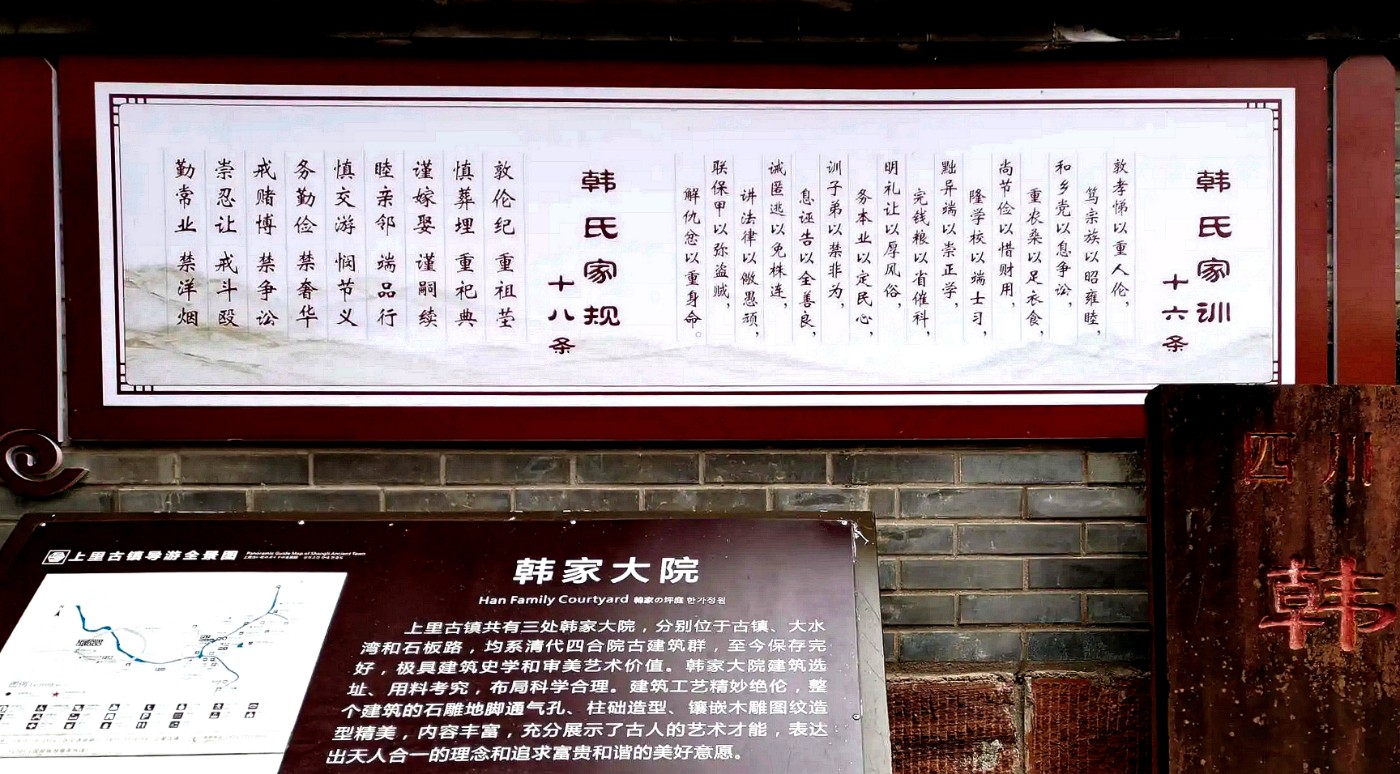 韩氏家训
十六条
敦孝悌以重人伦，
笃宗族以昭雍睦，
和乡党以息争讼，
重农桑以足衣食，
尚节俭以惜财用，
隆学校以端士习，
黜异端以崇正学，
完钱粮以省催科，
明礼让以厚风俗，
务本业以定民心，
训子弟以禁非为，
息诬告以全善良，
诫匿逃以免株连，
讲法律以儆愚顽，
联保甲以弥盗贼，
解仇忿以重身命。
韩氏家规
十八条
敦伦纪 重祖茔
慎葬埋 重祀典
谨嫁娶 谨嗣续
睦亲邻 端品行
慎交游 悯节义
务勤俭 禁奢华
戒赌博 禁争讼
崇忍让 戒斗殴
勤常业 禁洋烟
上里古镇导游全景图
Panoramic Guide Map of Shangli Ancient Town
韩家大院
Han Family Courtyard 韓家の坪庭 한가정원
上里古镇共有三处韩家大院，分别位于古镇、大水
湾和石板路，均系清代四合院古建筑群，至今保存完
好，极具建筑史学和审美艺术价值。韩家大院建筑选
址、用料考究，布局科学合理。建筑工艺精妙绝伦，整
个建筑的石雕地脚通气孔、柱础造型、镶嵌木雕图纹造
型精美，内容丰富，充分展示了古人的艺术才能，表达
出天人合一的理念和追求富贵和谐的美好意愿。
四川
韩